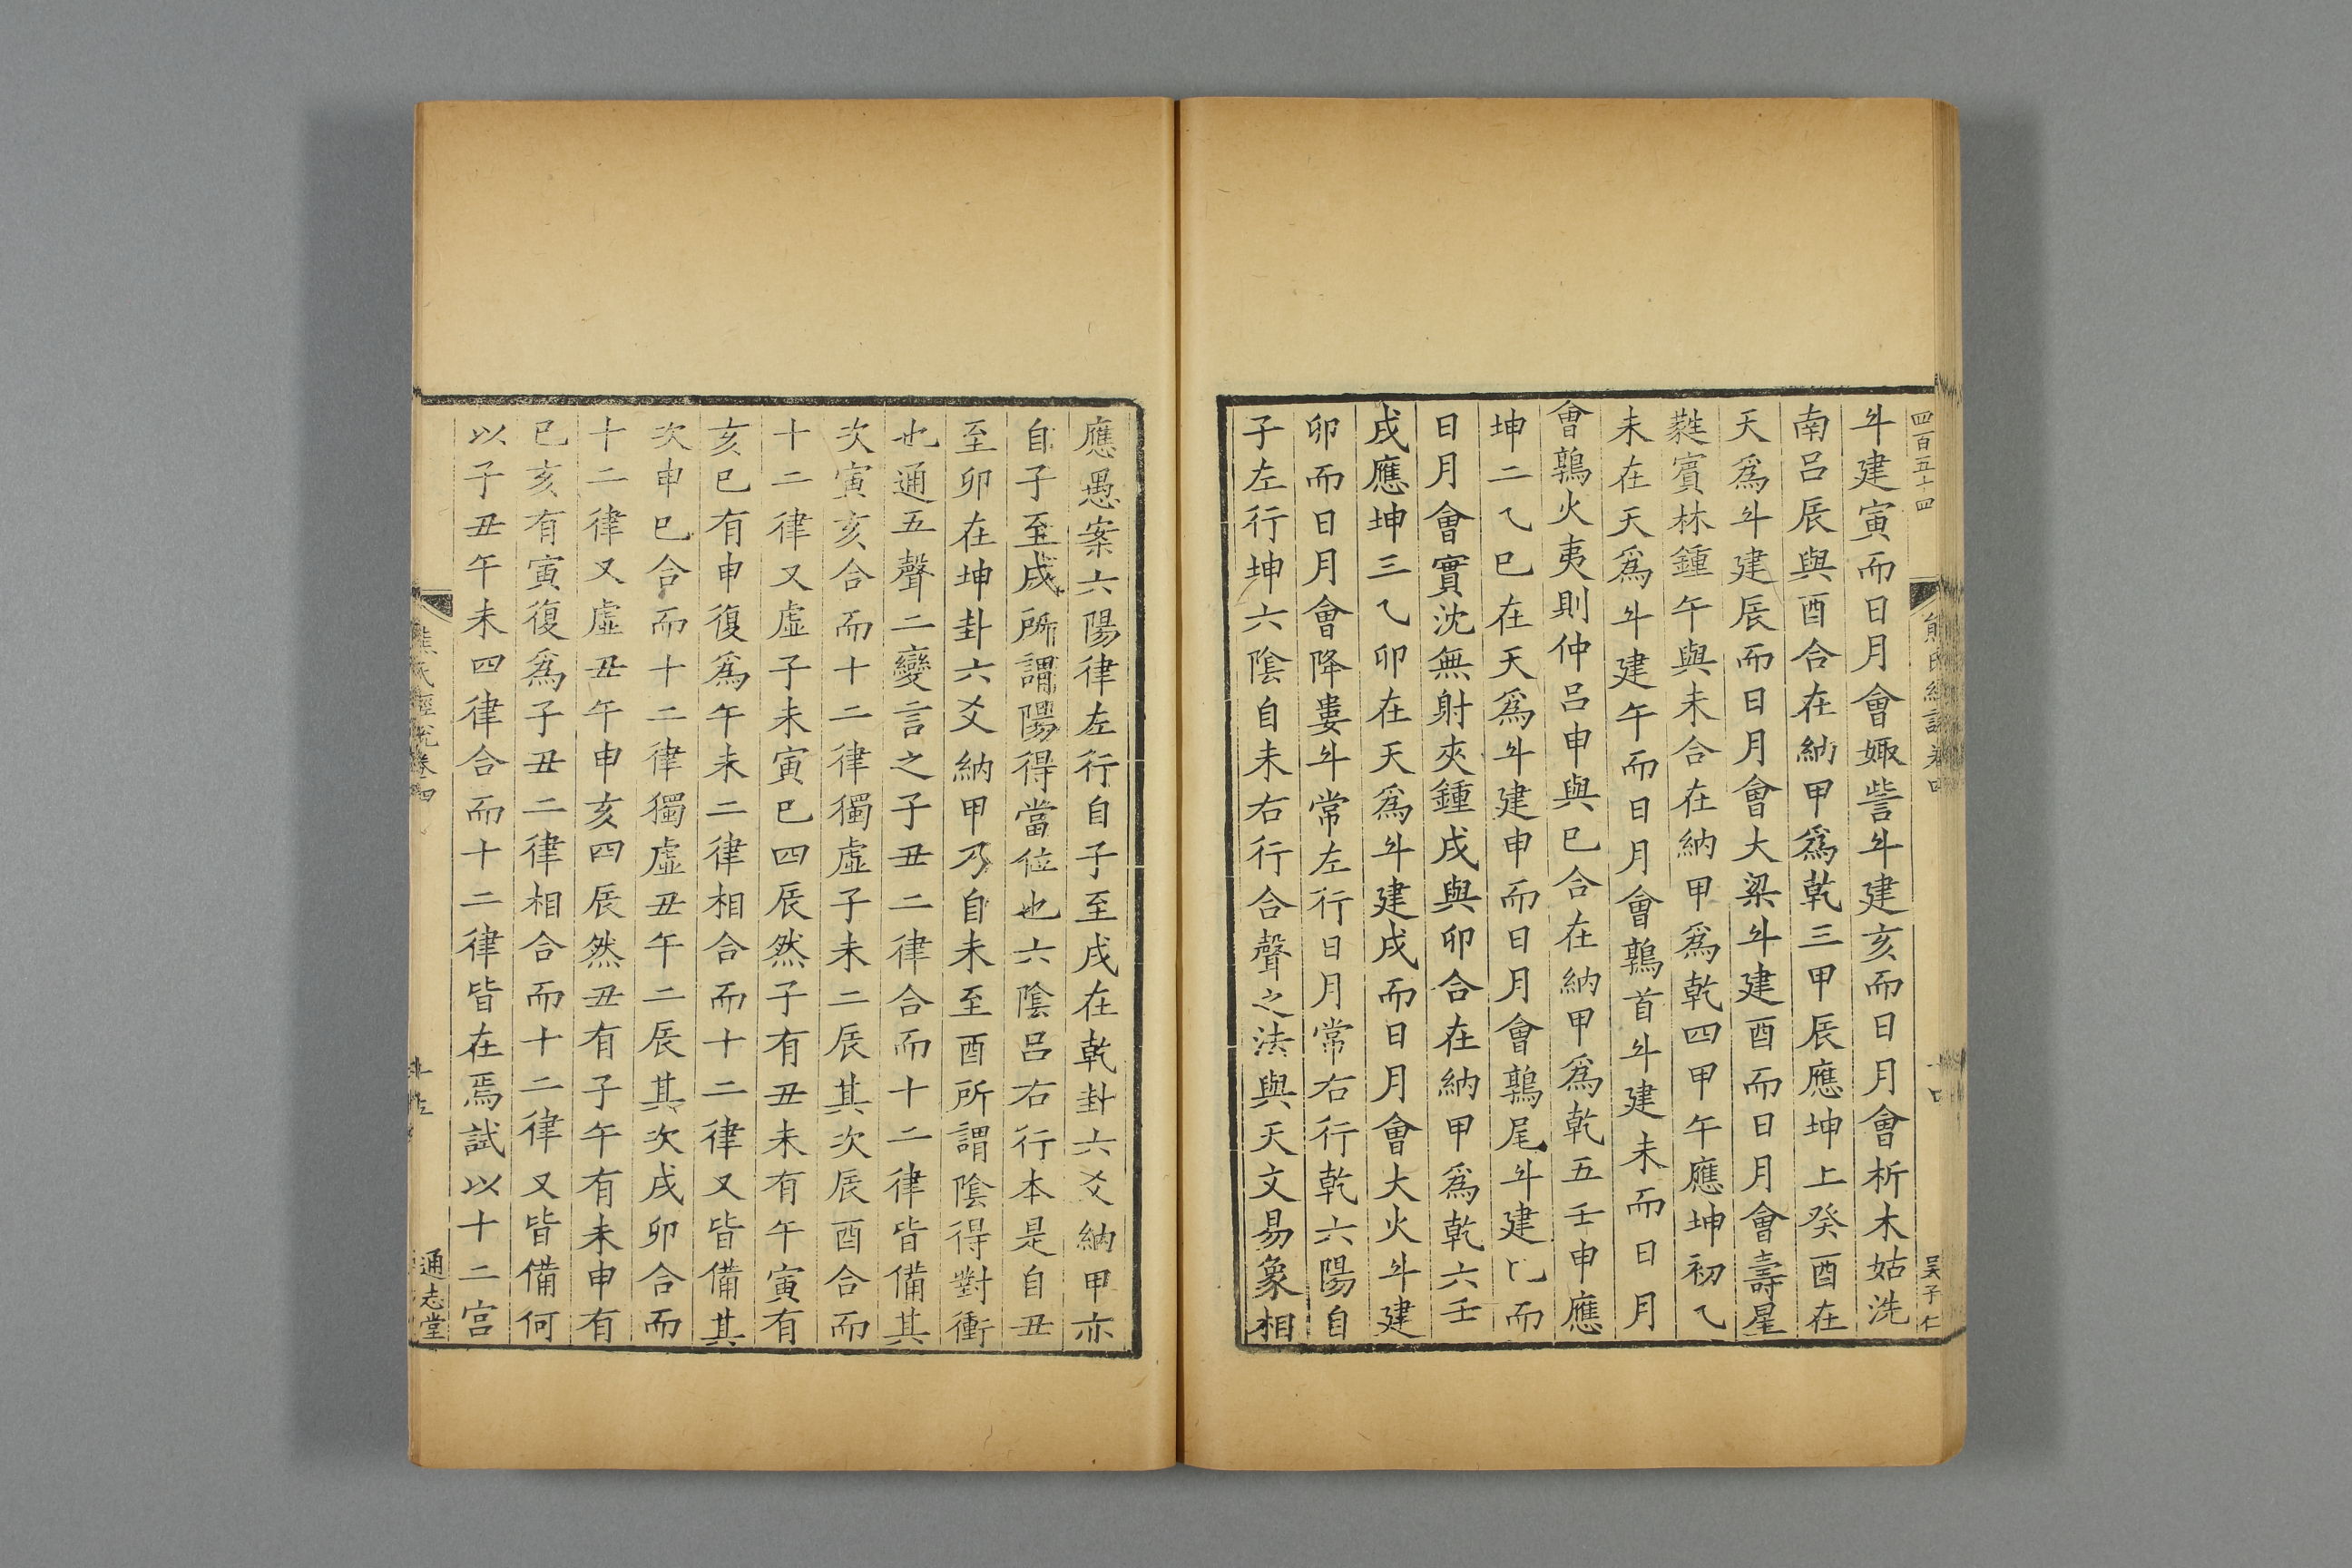 四百五十四
斗建寅而日月會娵訾斗建亥而日月會析木姑洗
南吕辰與酉合在納甲爲乾三甲辰應坤上癸酉在
天爲斗建辰而日月會大梁斗建酉而日月會壽星
蕤賓林鍾午與未合在納甲爲乾四甲午應坤初乙
未在天爲斗建午而日月會鶉首斗建未而日月
會鶉火夷則仲吕申與巳合在納甲爲乾五壬申應
坤二乙巳在天爲斗建申而日月會鶉尾斗建巳而
日月會實沈無射夾鍾戌與卯合在納甲爲乾六壬
戌應坤三乙卯在天爲斗建戌而日月會大火斗建
卯而日月會降婁斗常左行日月常右行乾六陽自
子左行坤六陰自未右行合聲之法與天文易象相
熊氏經說卷四
十四
吴子仁
應愚案六陽律左行自子至戌在乾卦六爻納甲亦
自子至戌所謂陽得當位也六陰吕右行本是自丑
至卯在坤卦六爻納甲乃自未至酉所謂陰得對衝
也通五聲二變言之子丑二律合而十二律皆備其
次寅亥合而十二律獨虛子未二辰其次辰酉合而
十二律又虛子未寅巳四辰然子有丑未有午寅有
亥巳有申復爲午未二律相合而十二律又皆備其
次申巳合而十二律獨虛丑午二辰其次戌卯合而
十二律又虛丑午申亥四辰然丑有子午有未申有
巳亥有寅復爲子丑二律相合而十二律又皆備何
以子丑午未四律合而十二律皆在焉試以十二宫
熊氏經說卷四
通志堂